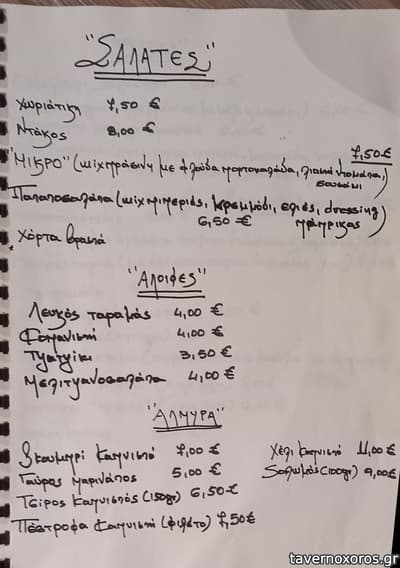 "ΣΑΛΑΤΕΣ"
Χωριάτικη 7,50 €
Ντάκος 8,00 €
"ΜΙΚΡΟ" (με φλούδα πορτοκαλάδα, λιαστή ντομάτα, 7,50€
Πατατοσαλάτα κρεμμύδι, ελιές, dressing
6,50 €
Χόρτα βραστά
"Αλοιφές"
Λευκός ταραμάς 4,00 €
4,00 €
Τζατζίκι 3,50 €
Μελιτζανοσαλάτα 4,00 €
"ΑΛΜΥΡΑ"
Σκουμπρί καπνιστό 7,00 € Χέλι καπνιστό 11,00 €
Γαύρος μαρινάτος 5,00 € Σολωμός (100gr) 9,00€
Τσίρος καπνιστός (150gr) 6,50€
Πέστροφα καπνιστή (φιλέτο) 7,50€
tavernoxoros.gr